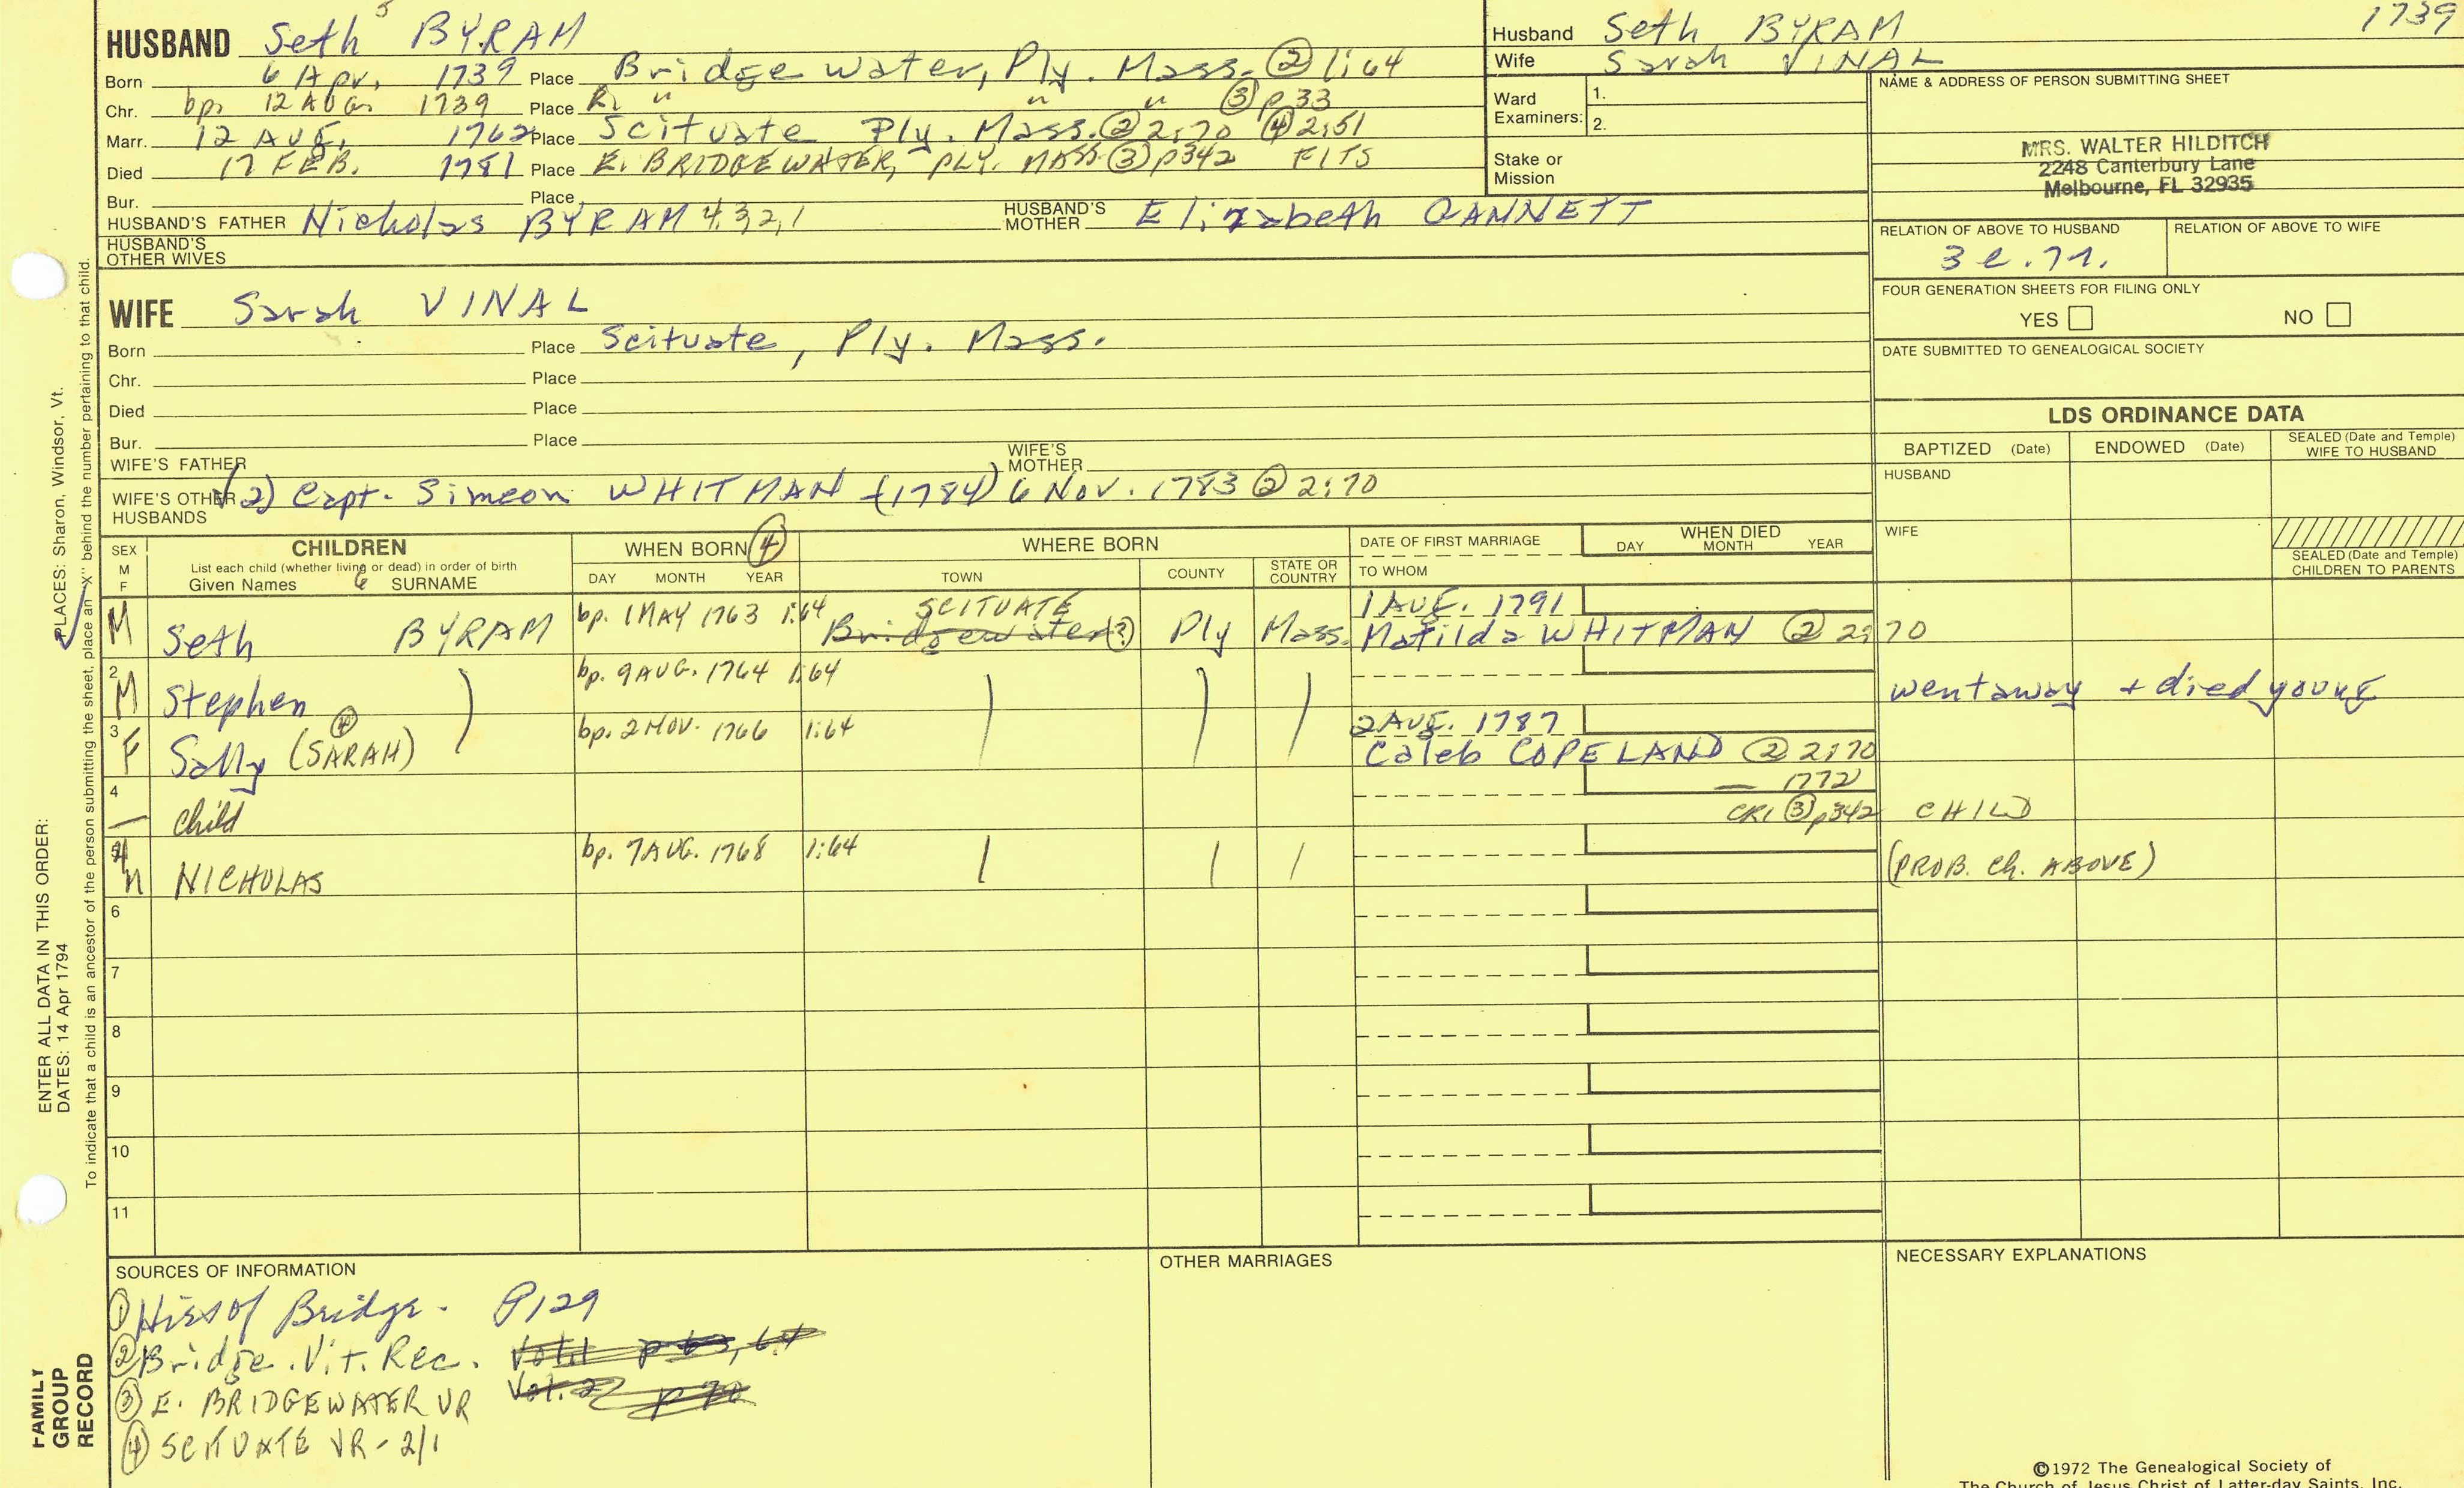 HUSBAND Seth 5 BYRAM
Born 6 Apr. 1739 Place Bridgewater, Ply. Mass. ② 1:64
Chr. bp. 12 AUG. 1739 Place E. " " " ③ p33
Marr. 12 AUG. 1762 Place Scituate Ply. Mass. ② 2:70 ④ 2:51
Died 17 FEB. 1781 Place E. BRIDGEWATER, PLY. MASS ③ p342 FITS
Bur. Place
HUSBAND'S FATHER Nicholas BYRAM 4,3,2,1 HUSBAND'S MOTHER Elizabeth GANNETT
HUSBAND'S OTHER WIVES
Husband Seth BYRAM 1739
Wife Sarah VINAL
Ward Examiners: 1.
2.
Stake or Mission
NAME & ADDRESS OF PERSON SUBMITTING SHEET
MRS. WALTER HILDITCH
2248 Canterbury Lane
Melbourne, FL 32935
RELATION OF ABOVE TO HUSBAND RELATION OF ABOVE TO WIFE
FOUR GENERATION SHEETS FOR FILING ONLY
YES NO
DATE SUBMITTED TO GENEALOGICAL SOCIETY
WIFE Sarah VINAL
Born Place Scituate, Ply. Mass.
Chr. Place
Died Place
Bur. Place
WIFE'S FATHER WIFE'S MOTHER
WIFE'S OTHER HUSBANDS (2) Capt. Simeon WHITMAN (1784) 6 Nov. 1783 ② 2:70
LDS ORDINANCE DATA
BAPTIZED (Date) ENDOWED (Date) SEALED (Date and Temple) WIFE TO HUSBAND
HUSBAND
WIFE
SEALED (Date and Temple) CHILDREN TO PARENTS
SEX M F CHILDREN WHEN BORN ④ WHERE BORN DATE OF FIRST MARRIAGE WHEN DIED
List each child (whether living or dead) in order of birth
Given Names 6 SURNAME DAY MONTH YEAR TOWN COUNTY STATE OR COUNTRY TO WHOM DAY MONTH YEAR
M Seth BYRAM bp. 1 MAY 1763 1:64 SCITUATE Bridgewater(?) Ply Mass. 1 AUG. 1791 Matilda WHITMAN ② 2:70
2 M Stephen bp. 9 AUG. 1764 1:64 went away + died young
3 F Sally (SARAH) ④ bp. 2 NOV. 1766 1:64 2 AUG. 1787 Caleb COPELAND ② 2:70
4 — child — 1772 CR1 ③ p342 CHILD
NICHOLAS bp. 7 AUG. 1768 1:64 (PROB. Ch. ABOVE)
6
7
8
9
10
11
SOURCES OF INFORMATION OTHER MARRIAGES NECESSARY EXPLANATIONS
① Hist of Bridge. P129
② Bridge. Vit. Rec. Vol. 1 p 63, 64
Vol. 2 p 70
③ E. BRIDGEWATER VR
④ SCITUATE VR - 2/1
©1972 The Genealogical Society of
The Church of Jesus Christ of Latter-day Saints, Inc.
ENTER ALL DATA IN THIS ORDER:
DATES: 14 Apr 1794 PLACES: Sharon, Windsor, Vt.
To indicate that a child is an ancestor of the person submitting the sheet, place an "X" behind the number pertaining to that child.
FAMILY
GROUP
RECORD